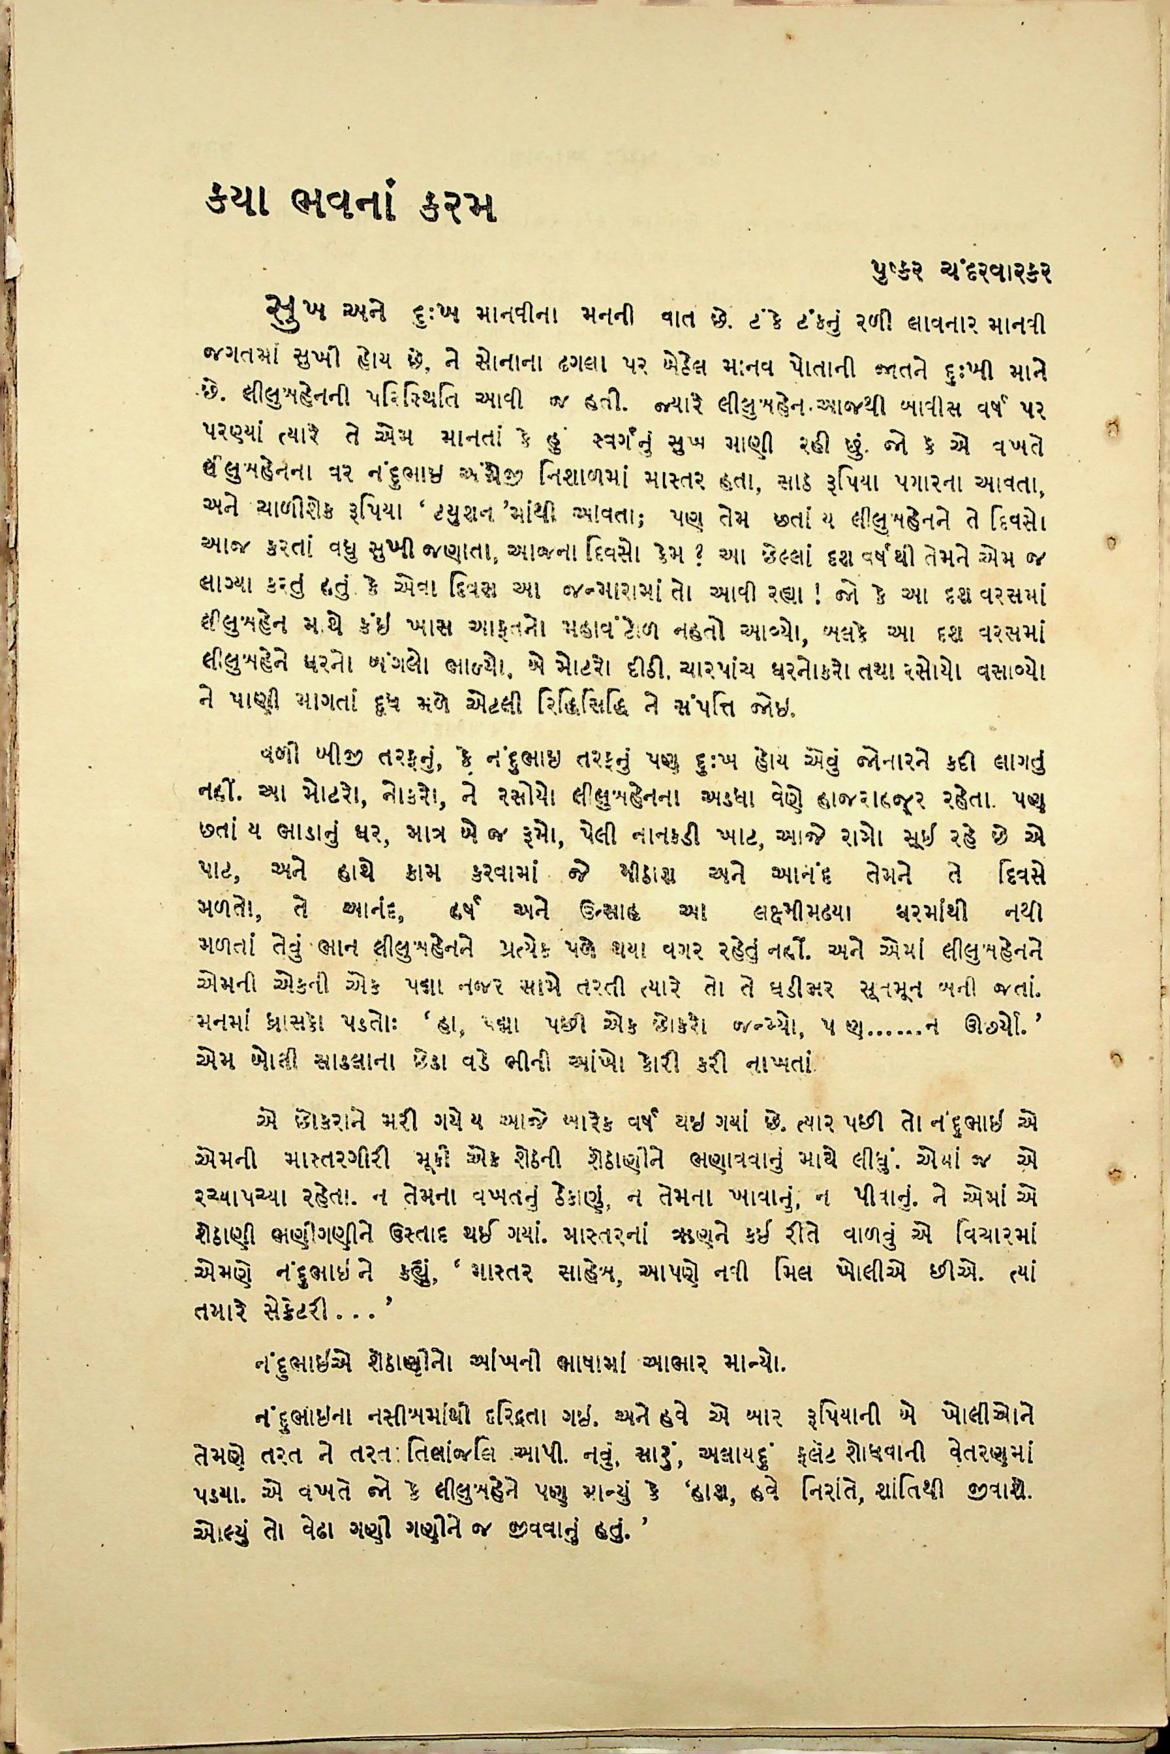 કયા ભવનાં કરમ
પુષ્કર ચંદરવારકર
સુખ અને દુઃખ માનવીના મનની વાત છે. ટંકે ટંકનું રળી લાવનાર માનવી
જગતમાં સુખી હોય છે, ને સોનાના ઢગલા પર બેઠેલ માનવ પોતાની જાતને દુઃખી માને
છે. લીલુબહેનની પરિસ્થિતિ આવી જ હતી. જ્યારે લીલુબહેન આજથી બાવીસ વર્ષ પર
પરણ્યાં ત્યારે તે એમ માનતાં કે હું સ્વર્ગનું સુખ માણી રહી છું. જો કે એ વખતે
લીલુબહેનના વર નંદુભાઇ અંગ્રેજી નિશાળમાં માસ્તર હતા, સાઠ રૂપિયા પગારના આવતા,
અને ચાળીશેક રૂપિયા ‘ટ્યુશન’માંથી આવતા; પણ તેમ છતાં ય લીલુબહેનને તે દિવસો
આજ કરતાં વધુ સુખી જણાતા, આજના દિવસો કેમ ? આ છેલ્લાં દશ વર્ષથી તેમને એમ જ
લાગ્યા કરતું હતું કે એવા દિવસ આ જન્મારામાં તો આવી રહ્યા ! જો કે આ દશ વરસમાં
લીલુબહેન માથે કંઇ ખાસ આફતનો મહાવંટોળ નહતો આવ્યો, બલકે આ દશ વરસમાં
લીલુબહેને ઘરનો બંગલો ભાળ્યો, બે મોટરો દીઠી, ચારપાંચ ઘરનોકરો તથા રસોયો વસાવ્યો
ને પાણી માગતાં દૂધ મળે એટલી રિદ્ધિસિદ્ધિ ને સંપત્તિ જોઇ.
વળી બીજી તરફનું, કે નંદુભાઇ તરફનું પણ દુઃખ હોય એવું જોનારને કદી લાગતું
નહીં. આ મોટરો, નોકરો, ને રસોયો લીલુબહેનના અડધા વેણે હાજરાહજૂર રહેતા. પણ
છતાં ય ભાડાનું ઘર, માત્ર બે જ રૂમો, પેલી નાનકડી ખાટ, આજે રામો સૂઈ રહે છે એ
પાટ, અને હાથે કામ કરવામાં જે મીઠાશ અને આનંદ તેમને તે દિવસે
મળતો, તે આનંદ, હર્ષ અને ઉત્સાહ આ લક્ષ્મીમઢ્યા ઘરમાંથી નથી
મળતાં તેવું ભાન લીલુબહેનને પ્રત્યેક પળે થયા વગર રહેતું નહીં. અને એમાં લીલુબહેનને
એમની એકની એક પદ્મા નજર સામે તરતી ત્યારે તો તે ઘડીભર સૂનમૂન બની જતાં.
મનમાં ધ્રાસકો પડતોઃ ‘હા, પદ્મા પછી એક છોકરો જન્મ્યો, પણ......ન ઊછર્યો.’
એમ બોલી સાડલાના છેડા વડે ભીની આંખો કોરી કરી નાખતાં
એ છોકરાને મરી ગયે ય આજે બારેક વર્ષ થઇ ગયાં છે. ત્યાર પછી તો નંદુભાઇ એ
એમની માસ્તરગીરી મૂકી એક શેઠની શેઠાણીને ભણાવવાનું માથે લીધું. એમાં જ એ
રચ્યાપચ્યા રહેતા. ન તેમના વખતનું ઠેકાણું, ન તેમના ખાવાનું, ન પીવાનું. ને એમાં એ
શેઠાણી ભણીગણીને ઉસ્તાદ થઈ ગયાં. માસ્તરનાં ઋણને કઇ રીતે વાળવું એ વિચારમાં
એમણે નંદુભાઇને કહ્યું, ‘માસ્તર સાહેબ, આપણે નવી મિલ ખોલીએ છીએ. ત્યાં
તમારે સેક્રેટરી...’
નંદુભાઈએ શેઠાણીનો આંખની ભાષામાં આભાર માન્યો.
નંદુભાઇના નસીબમાંથી દરિદ્રતા ગઇ. અને હવે એ બાર રૂપિયાની બે ખોલીઓને
તેમણે તરત ને તરત તિલાંજલિ આપી. નવું, સારું, અલાયદું ફલૅટ શોધવાની વેતરણમાં
પડયા. એ વખતે જો કે લીલુબહેને પણ માન્યું કે ‘હાશ, હવે નિરાંતે, શાંતિથી જીવાશે.
ઓલ્યું તો વેઢા ગણી ગણીને જ જીવવાનું હતું.’